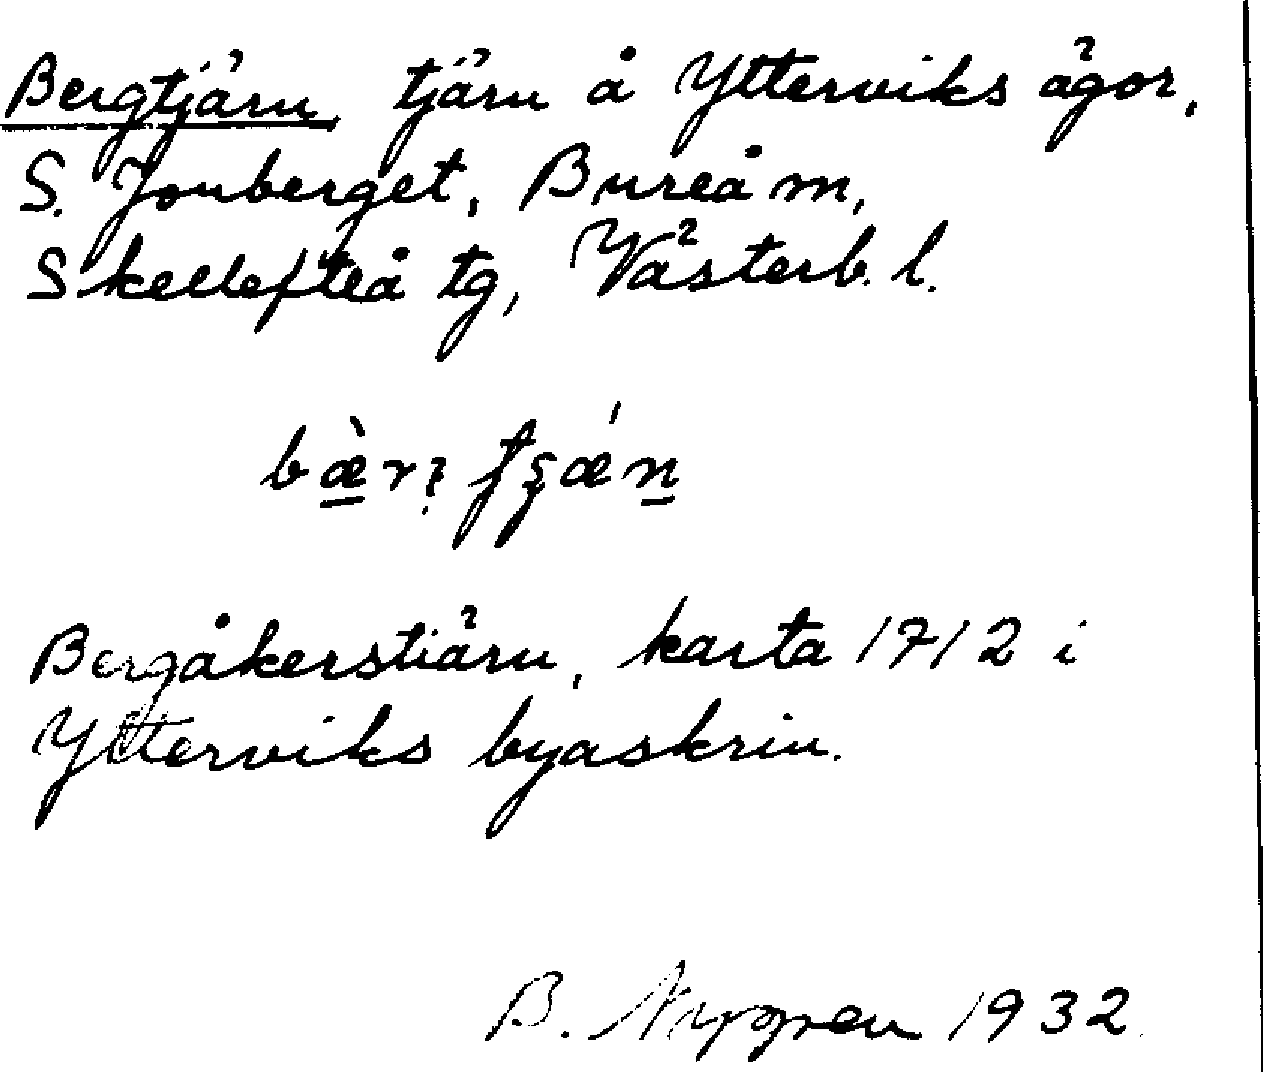 Bergtjärn, tjärn å Ytterviks ägor,
S. Jonberget, Bureå m,
Skellefteå tg, Västerb. l.
Bergåkerstiärn, karta 1712 i
Ytterviks byaskrin.
B. Nygren 1932